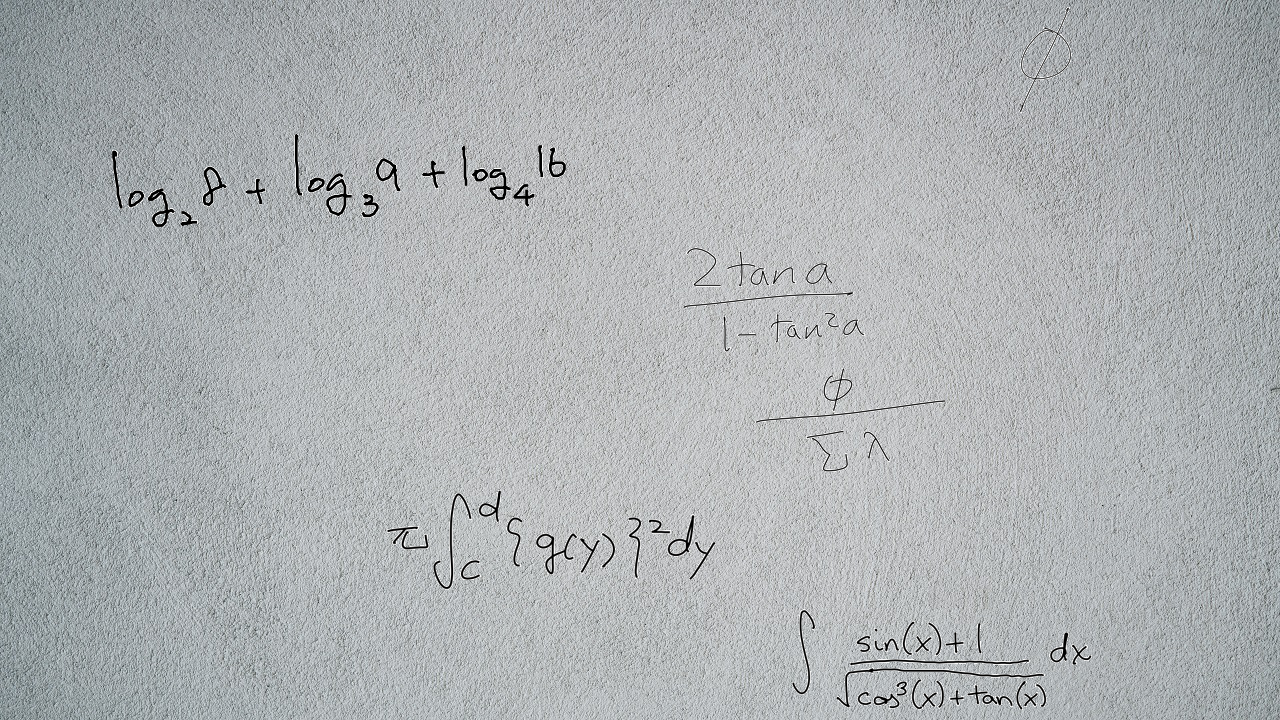 ∅
log₂ 8 + log₃ 9 + log₄ 16
2 tan a
1 - tan²a
ϕ
∑ λ
π ∫_c^d {g(y)}² dy
∫ (sin(x)+1)/√(cos³(x)+tan(x)) dx